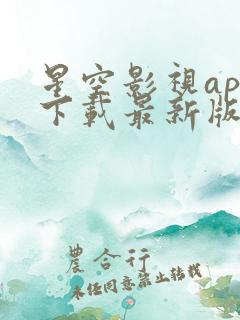 星空影視ap
下載最新版
農合行
未经同意禁止转载